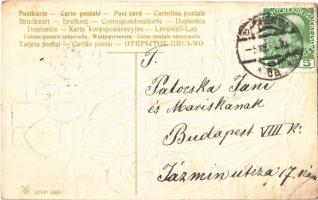 Postkarte — Carte postale — Post card — Cartolina postale
Briefkaart — Brefkort — Correspondenzkarte — Dopisnice
Dopisnice — Karta korespondencyjna — Levelező-Lap
Union postale universelle — Weltpostverein — Union postale universelle
Tarjeta postal — Cartão postal — ОТКРЫТОЕ ПИСЬМО
T.
Patocska Jani
és Mariskának
Budapest VIII k.
Jázmin utcza 17